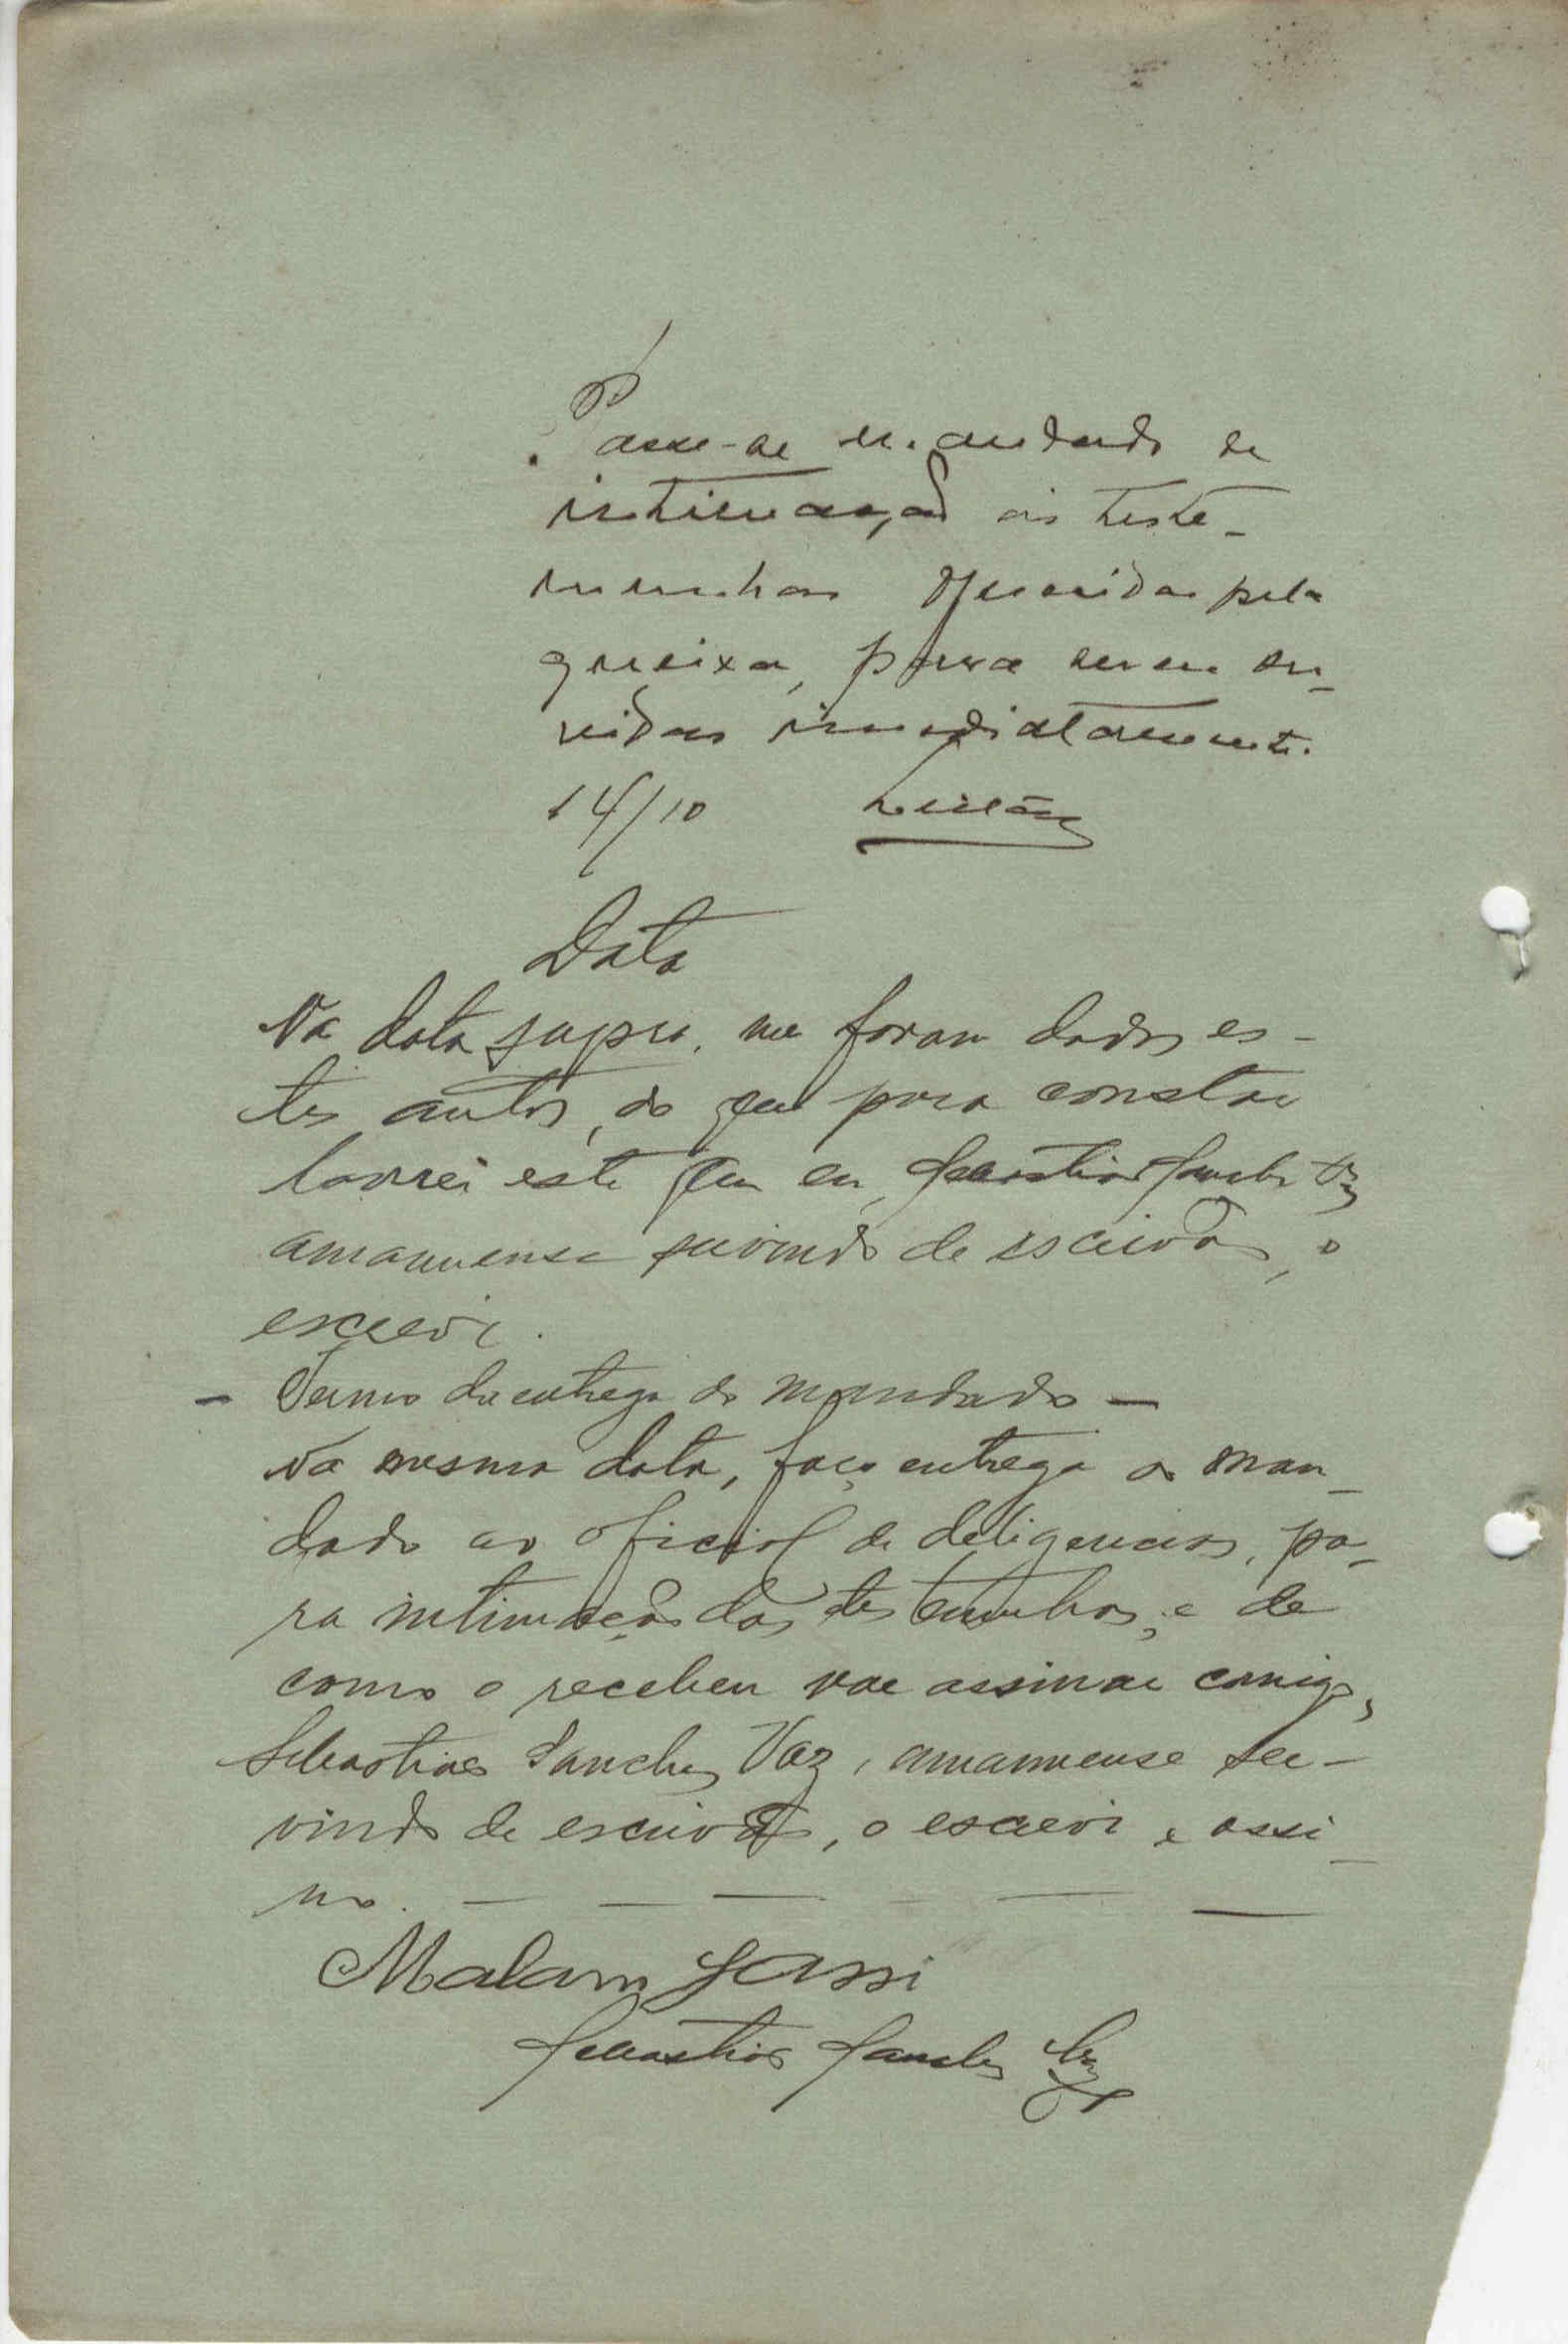 Passe-se mandado de
intimação ás teste-
munhas oferecidas pela
queixa, para serem ou-
vidas immediatamente.
14/10
Data
Na data supra, me foram dados es-
tes autos, do que para constar
lavrei este que eu, Sebastião Sanches Vaz
amanuense servindo de escrivão, o
escrevi.
- Termo de entrega do mandado -
Na mesma data, faço entrega do man-
dado ao oficial de deligencias, pa-
ra intimação das testemunhas, e de
como o recebeu vae assinar comigo,
Sebastião Sanches Vaz, amanuense ser-
vindo de escrivão, o escrevi e assi-
no.
Malam Sassi
Sebastião Sanches Vaz